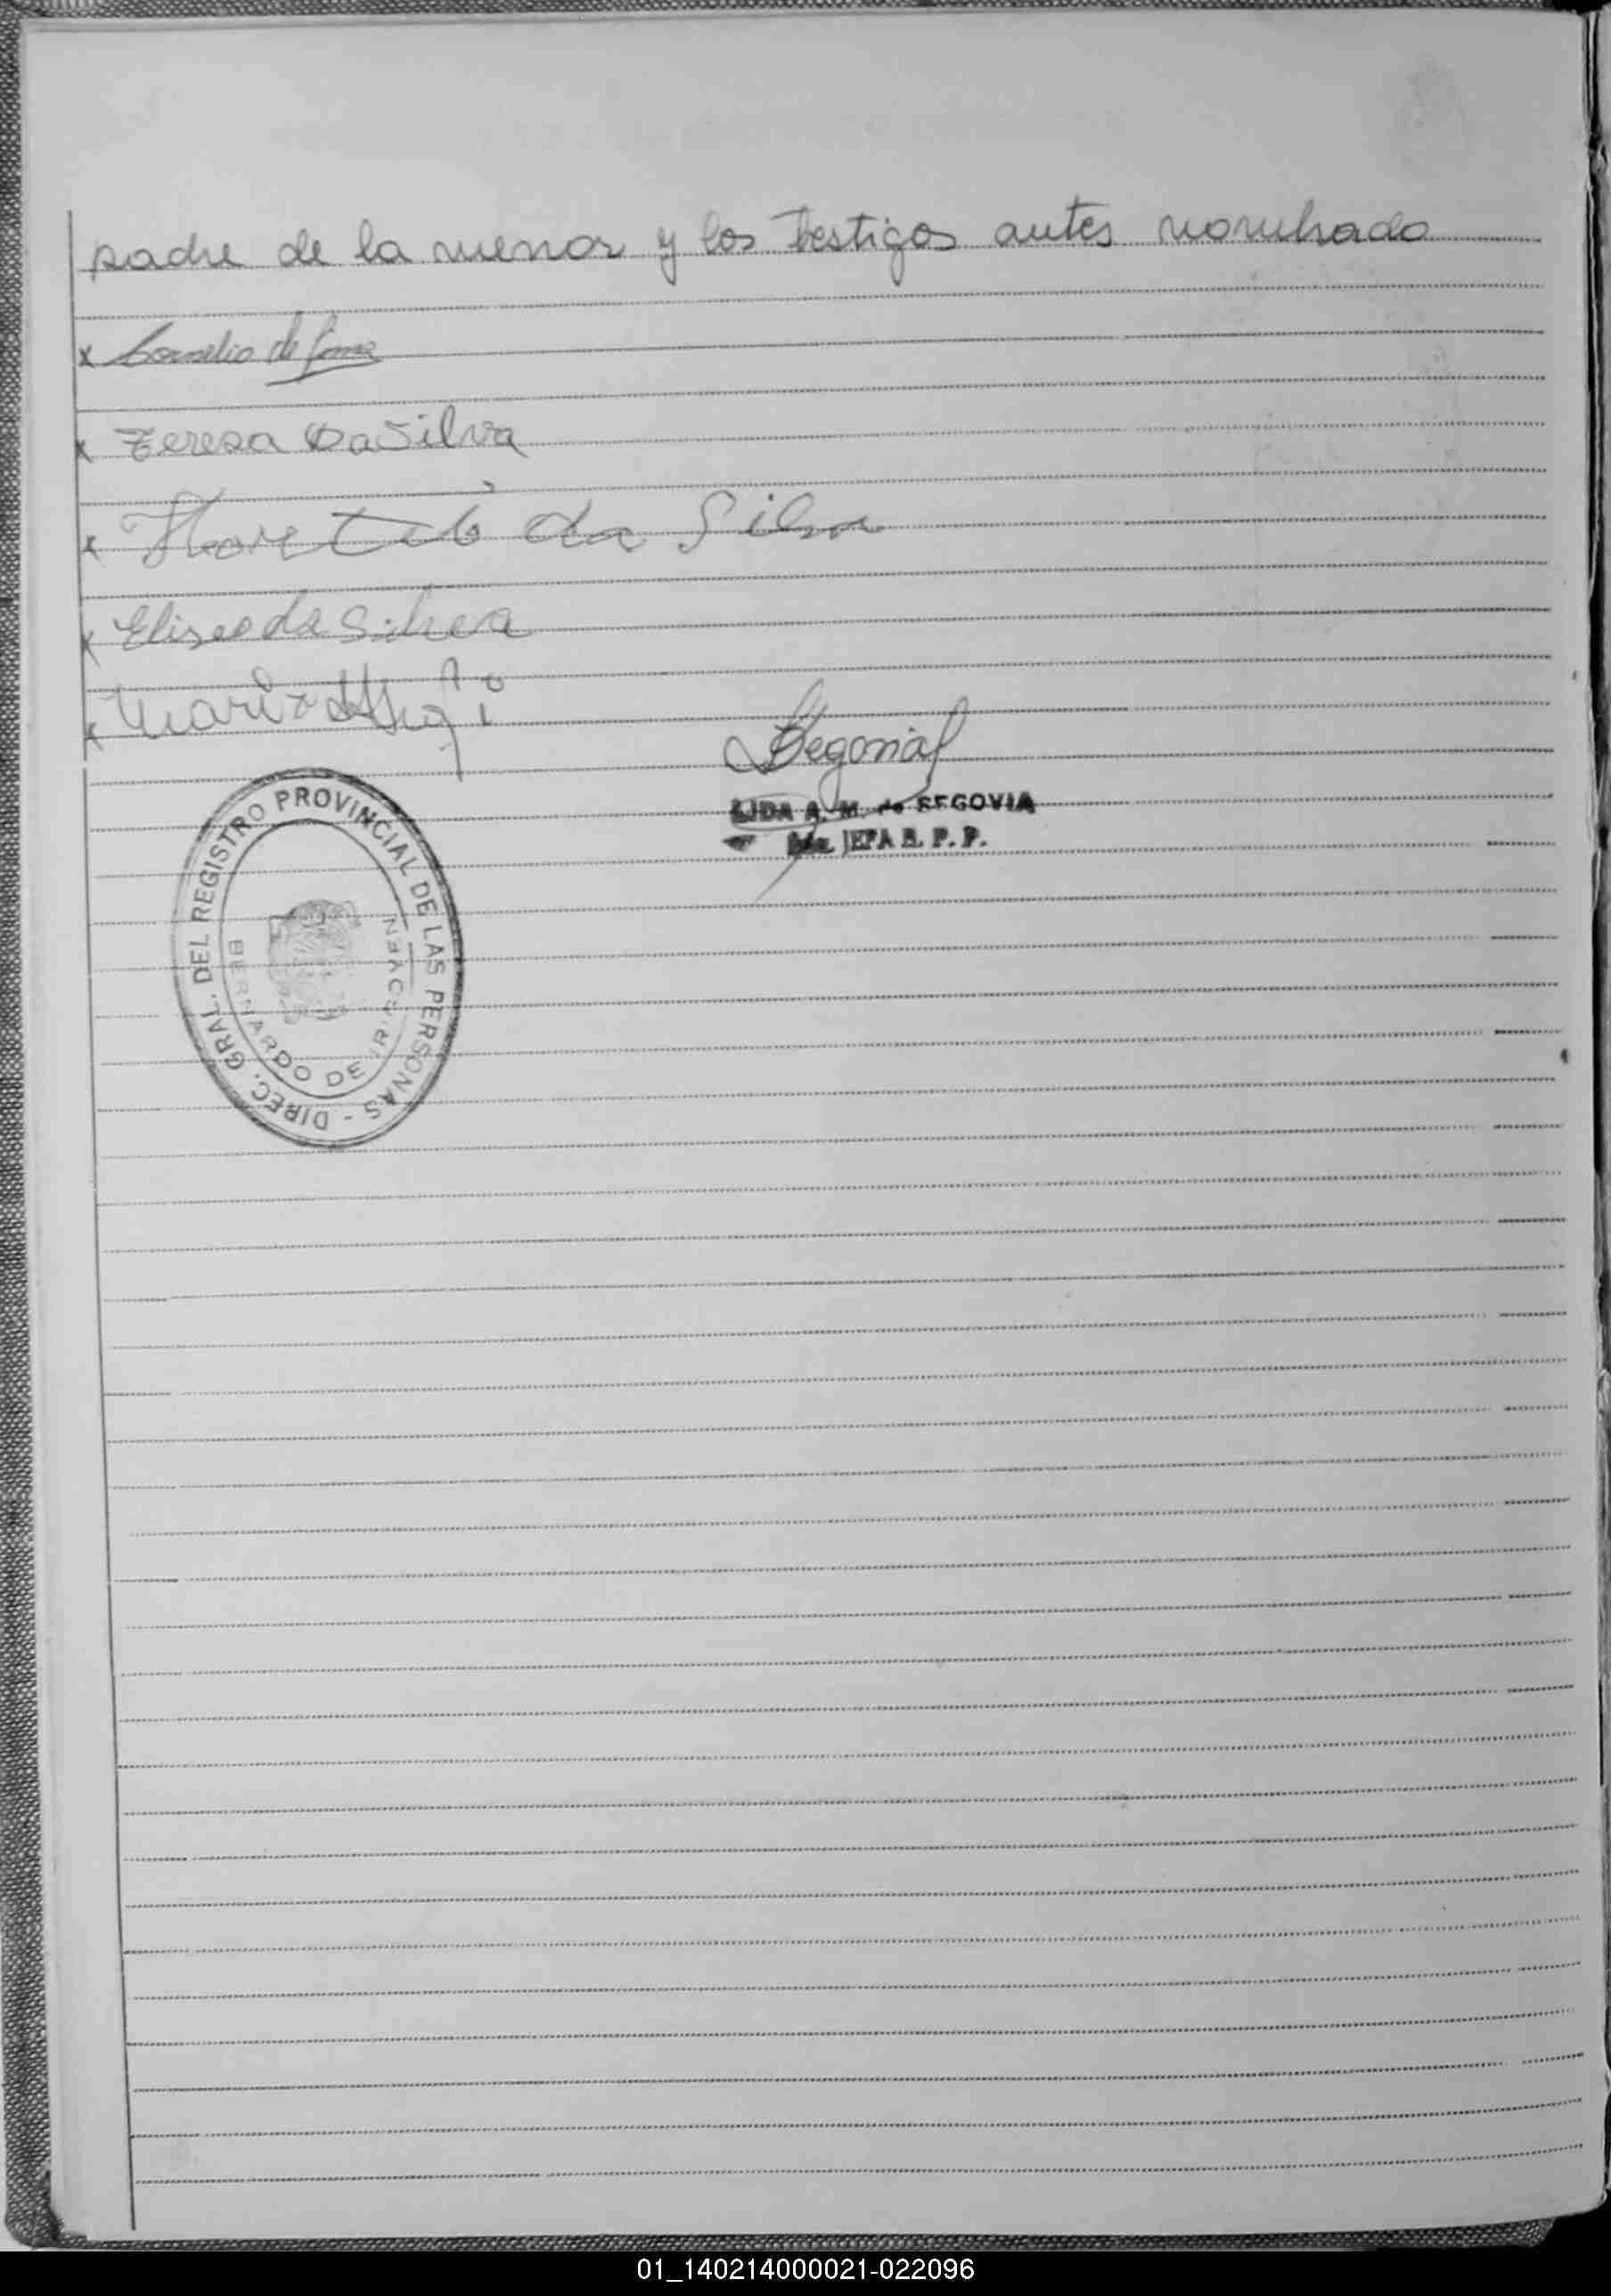 padre de la menor y los testigos antes nombrado
x Cornelio de
x Teresa DaSilva
x da Silva
x Eliseo da Silva
x Mario
LIDA A. M. de SEGOVIA
JEFA R. P. P.
DIREC. GRAL. DEL REGISTRO PROVINCIAL DE LAS PERSONAS -
BERNARDO DE IRIGOYEN
01_140214000021-022096